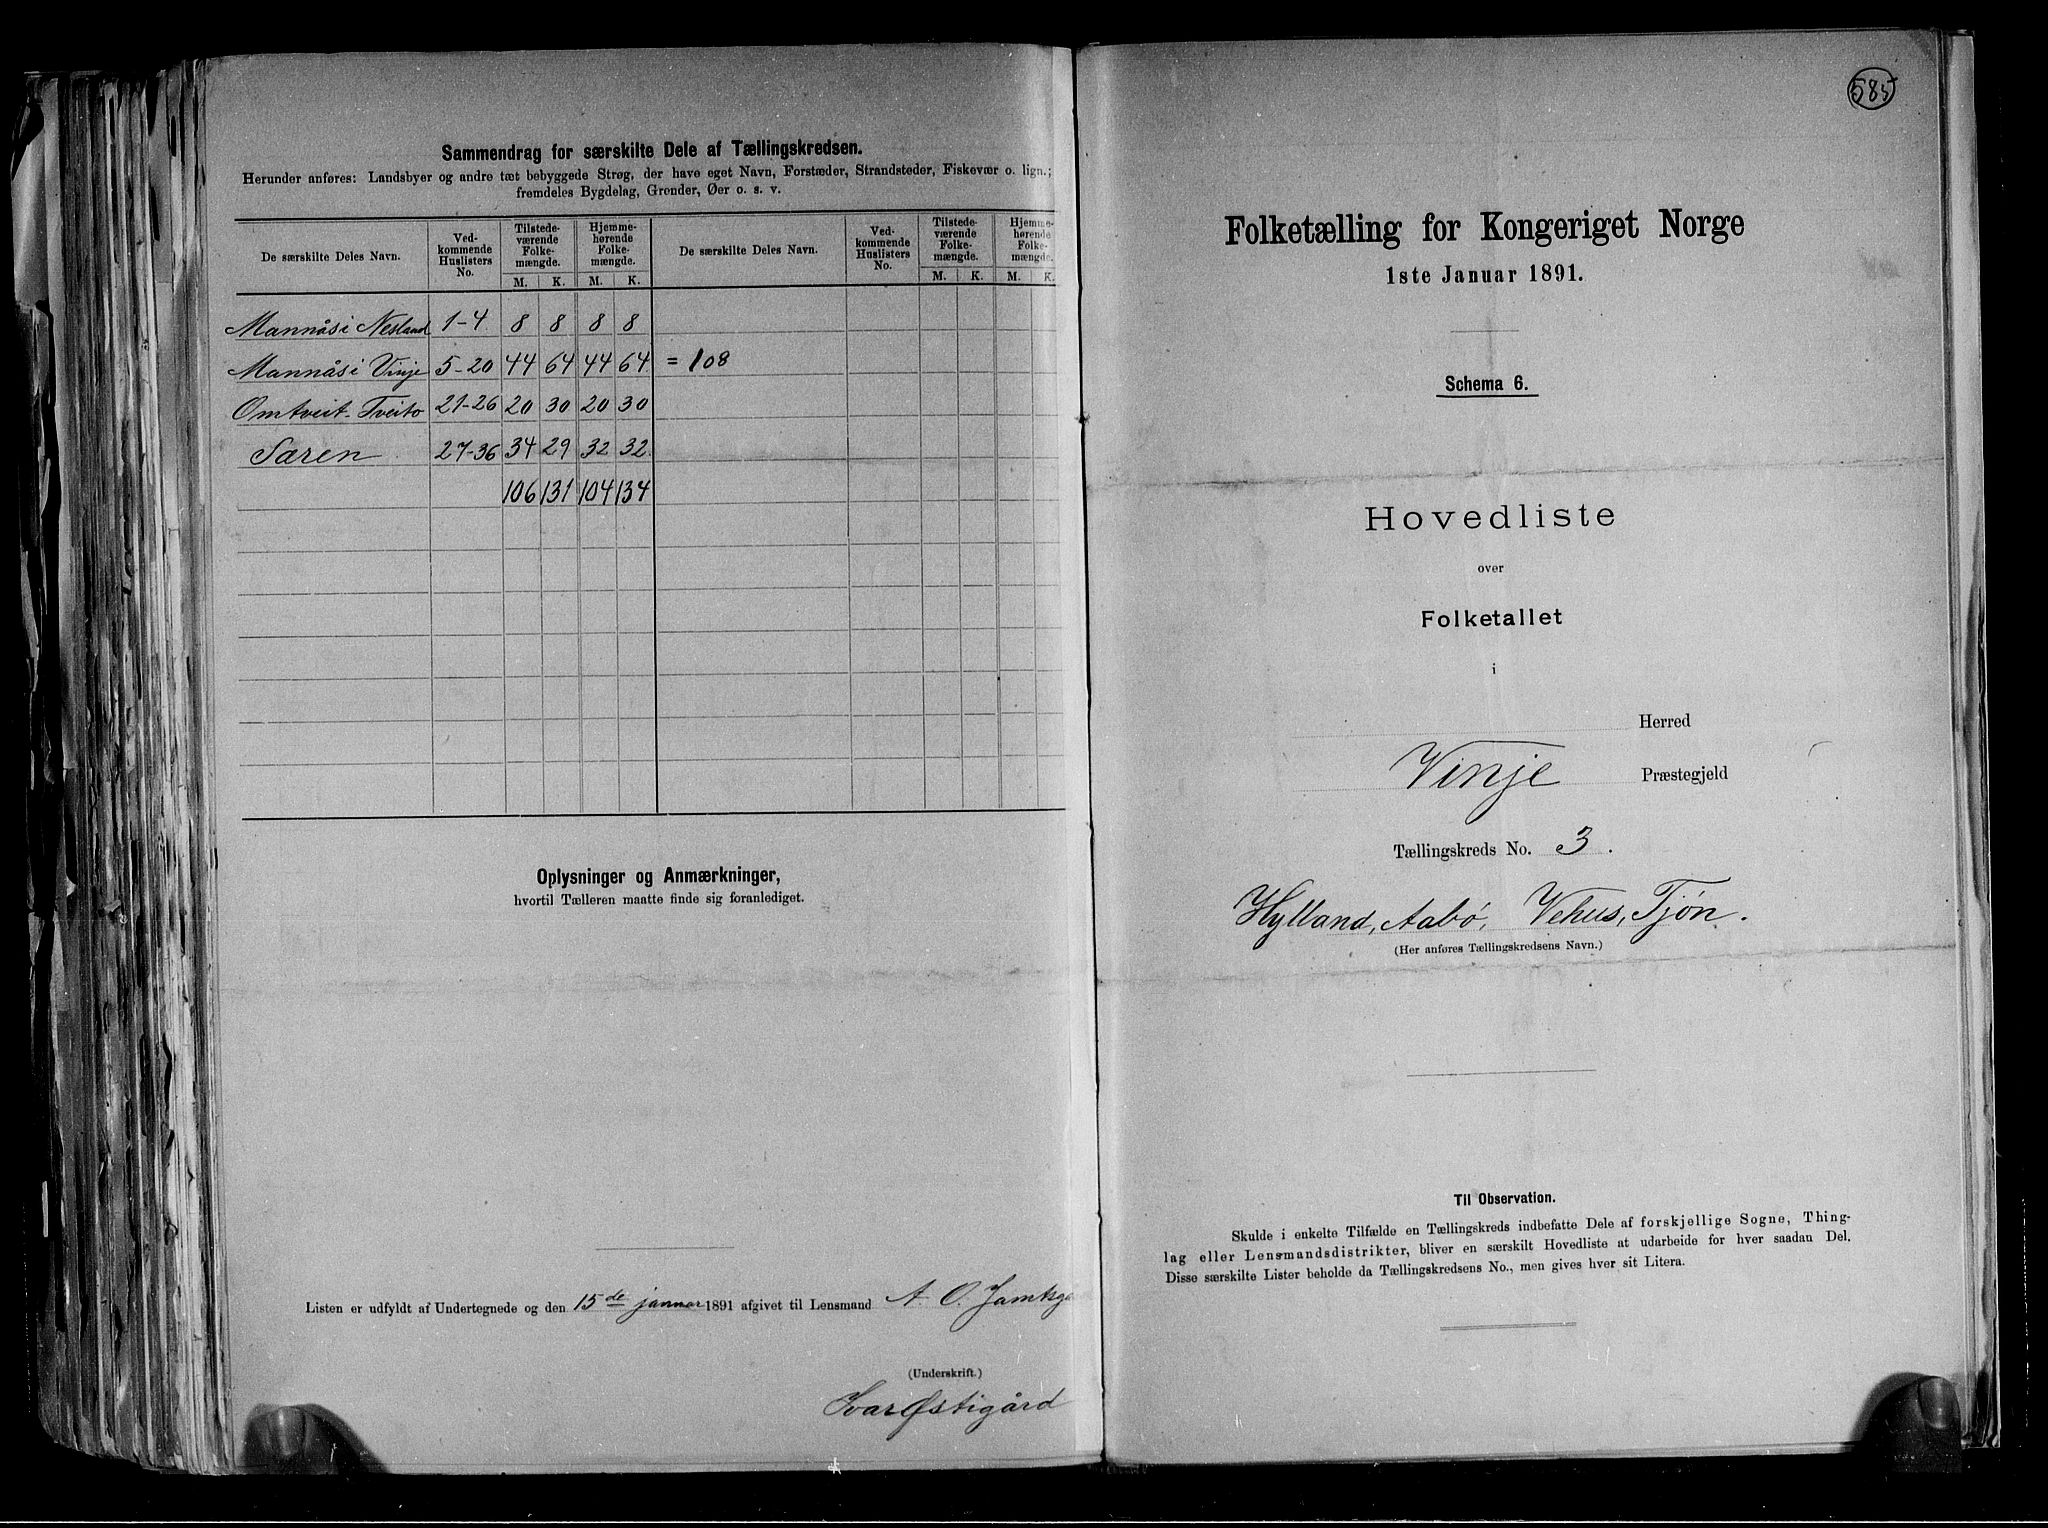 Sammendrag for særskilte Dele af Tællingskredsen.
Herunder anføres: Landsbyer og andre tæt bebyggede Strøg, der have eget Navn, Forstæder, Strandsteder, Fiskevær o. lign.;
fremdeles Bygdelag, Grender, Øer o. s. v.
De særskilte Deles Navn. Ved-kommende Huslisters No. Tilstede-værende Folke-mængde. Hjemme-hørende Folke-mængde. De særskilte Deles Navn. Ved-kommende Huslisters No. Tilstede-værende Folke-mængde. Hjemme-hørende Folke-mængde.
M. K. M. K. M. K. M. K.
Mannås i Nesland 1-4 8 8 8 8
Mannås i Vinje 5-20 44 64 44 64 = 108
Omtveit-Tveito 21-26 20 30 20 30
27-36 34 29 32 32
106 131 104 134
Oplysninger og Anmærkninger,
hvortil Tælleren maatte finde sig foranlediget.
Listen er udfyldt af Undertegnede og den 15de januar 1891 afgivet til Lensmand A. O.
(Underskrift.)
Ivar Østigård
585
Folketælling for Kongeriget Norge
1ste Januar 1891.
Schema 6.
Hovedliste
over
Folketallet
i
Herred
Vinje Præstegjeld
Tællingskreds No. 3.
Hylland, Aabø, Vehus, Tjøn.
(Her anføres Tællingskredsens Navn.)
Til Observation.
Skulde i enkelte Tilfælde en Tællingskreds indbefatte Dele af forskjellige Sogne, Thing-
lag eller Lensmandsdistrikter, bliver en særskilt Hovedliste at udarbeide for hver saadan Del.
Disse særskilte Lister beholde da Tællingskredsens No., men gives hver sit Litera.